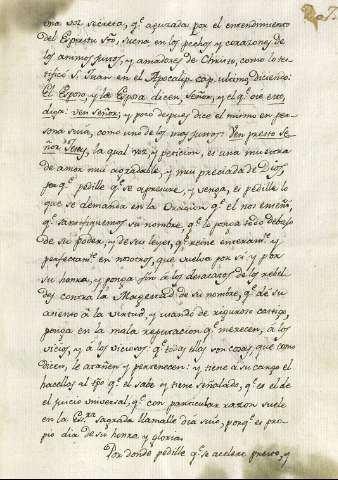 una voz secreta, q.e aguzada por el entendimiento
del Espiritu Sto, suena en los pechos y corazones de
los animos justos, y amadores de Christo, como lo cer-
tificó S. Juan en el Apocalip. cap. ultimo diciendo:
El Esposo, y la Esposa dicen, Señor, y el q.e oie esto,
diga: ven Señor; y poco despues dice el mismo en per-
sona suia, como uno de los mas justos: Ven presto Se-
ñor Jesus, la qual voz, y peticion, es una muestra
de amor mui agradable, y mui preciada de Dios,
porq.e pedille q.e se apresure, y venga, es pedille lo
que se demanda en la Oracion q.e el nos enseñó,
q.e santifiquemos su nombre, q.e lo ponga todo debajo
de su poder, y de sus leyes, q.e reine enteram.te y
perfectam.te en nosotros, que vuelva por sí y por
su honra, y ponga fin á los desacatos de los rebel-
des contra la Magestad de su nombre, q.e dé su
asiento á la virtud: y usando de riguroso castigo,
ponga en la mala reputacion q.e merecen, á los
vicios, y á los viciosos: q.e todas ellas son cosas, que como
dicen, le atañen y pertenecen: y tiene a su cargo el
hacellas al tpo q.e el sabe y tiene señalado, q.e es el de
el juicio universal, q.e con particular razon suele
en la Es.ra sagrada llamalle dia suio, porq.e es pro-
pio dia de su honra y gloria.
Por donde pedille q.e se acelere presto, y